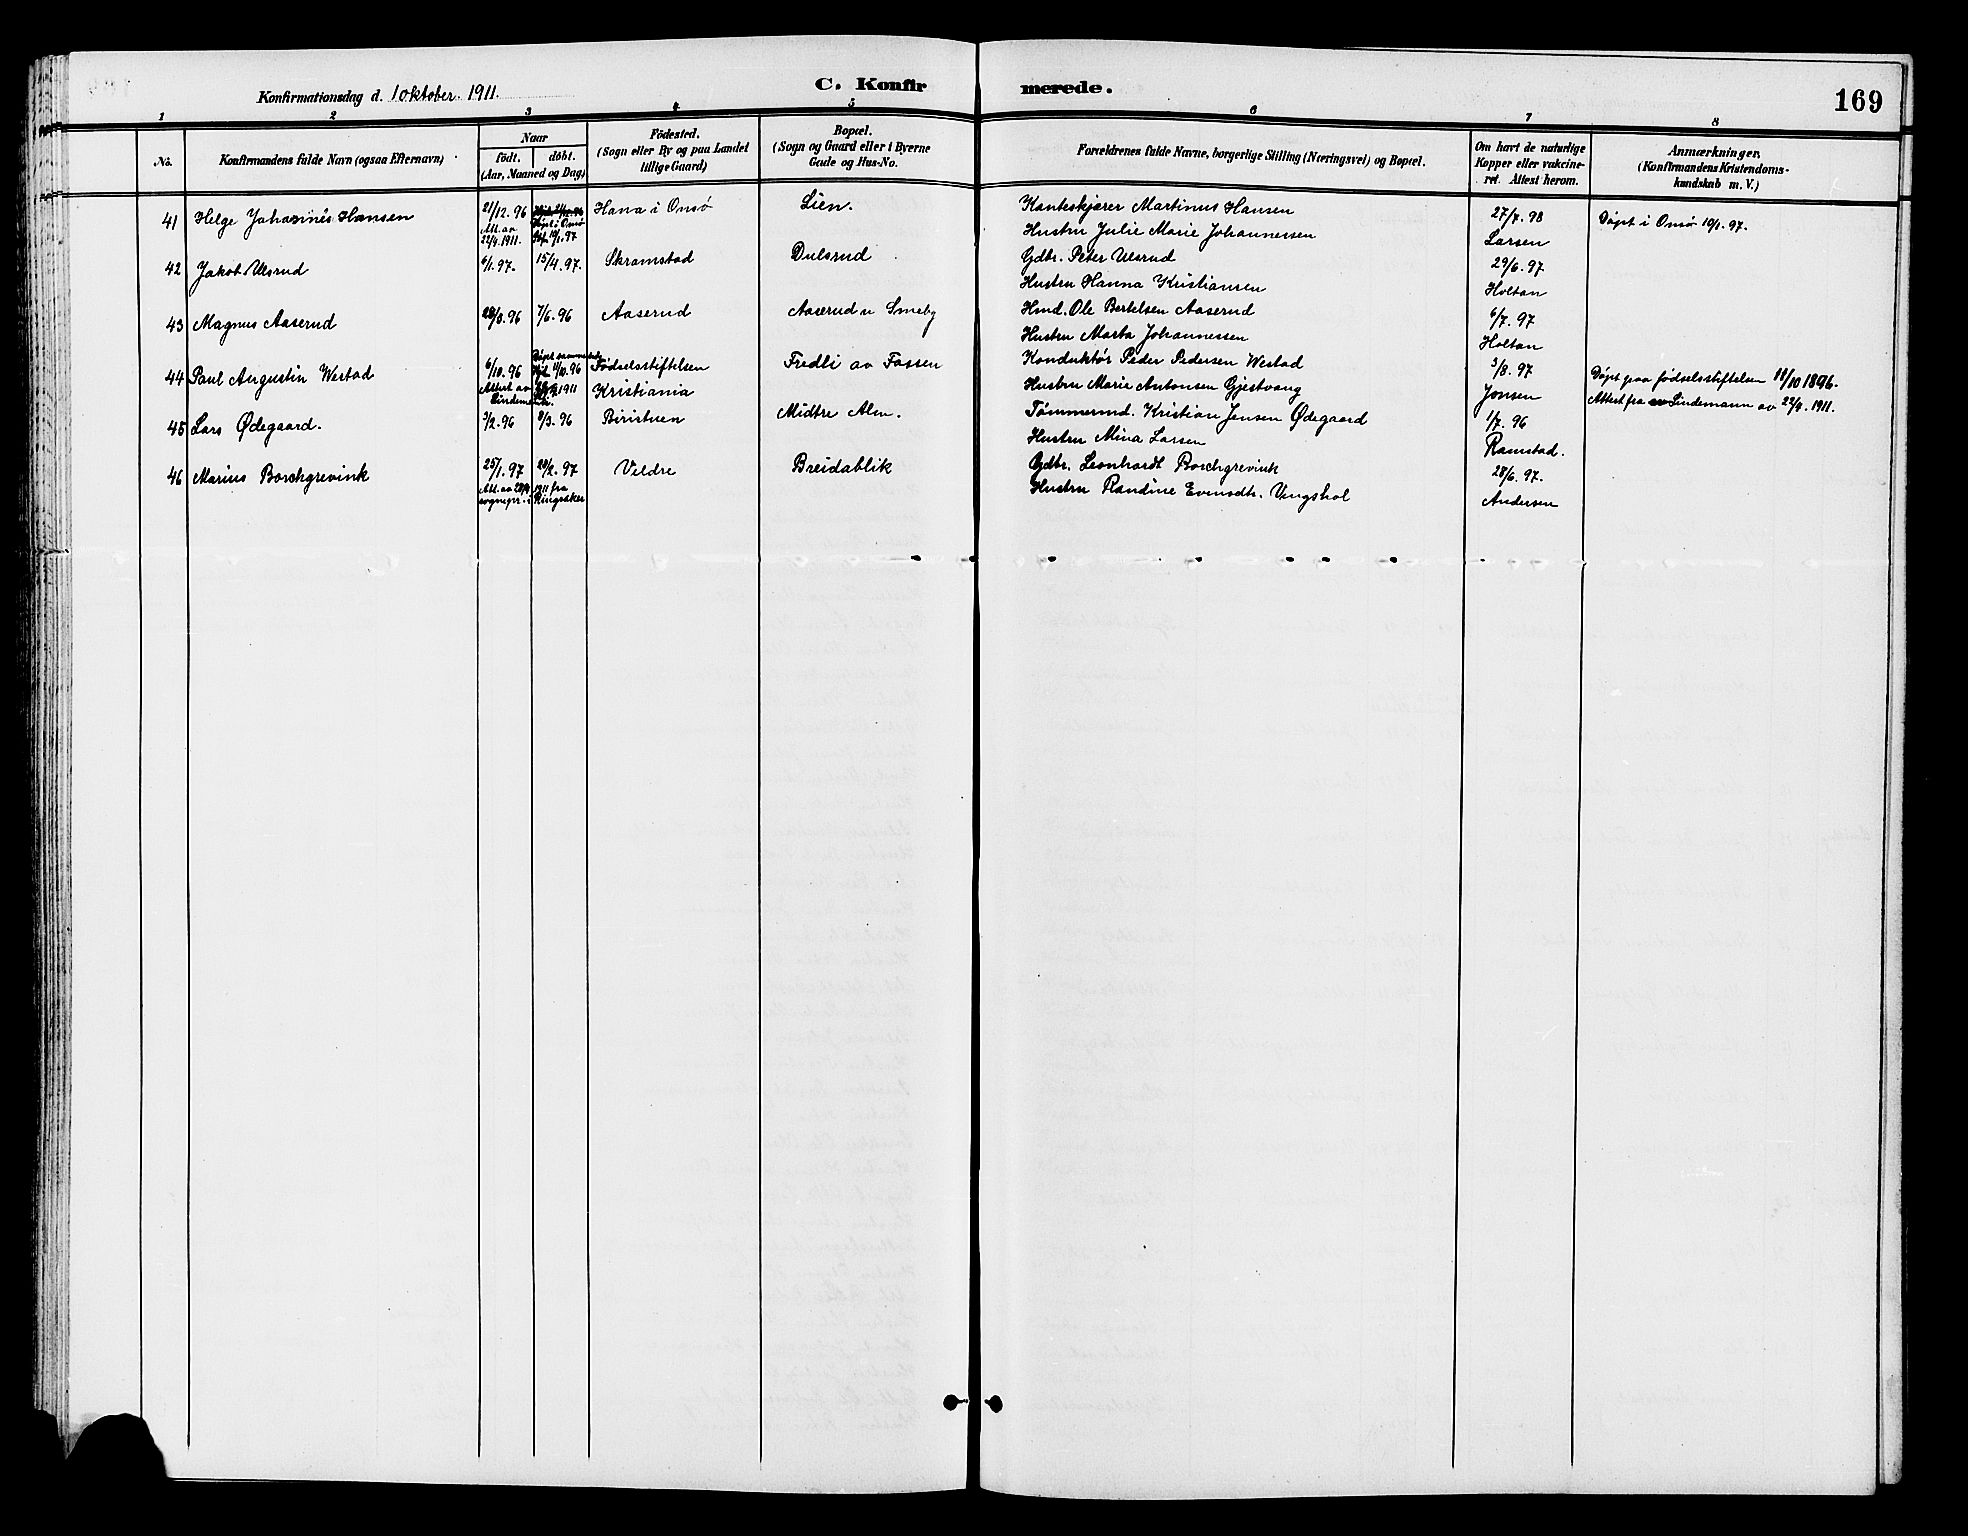 Konfirmationsdag d. 1 oktober. 1911.
C. Konfirmerede.
169
1 2 3 4 5 6 7 8
No.
Konfirmandens fulde Navn (ogsaa Efternavn)
Naar
født. døbt.
(Aar, Maaned og Dag)
Fødested.
(Sogn eller By og paa Landet
tillige Gaard)
Bopæl.
(Sogn og Gaard eller i Byerne
Gade og Hus-No.
Forældrenes fulde Navne, borgerlige Stilling (Næringsvei) og Bopæl.
Om havt de naturlige
Kopper eller vakcine-
ret. Attest herom.
Anmærkninger.
(Konfirmandens Kristendoms-
kundskab m. V.)
41 Helge Johannes Hansen 21/12. 96 Hana i Onsø Lien. Kanteskjører Martinus Hansen 27/7. 98 Døpt i Onsø 10/1. 97.
Att. av Døpt i Onsø
22/4. 1911. 10/1. 97 Hustru Julie Marie Johannessen Larsen
42 Jakob Ulsrud 6/1. 97. 15/4. 97. Skramstad Dulsrud Gdbr. Peter Ulsrud 29/6. 97
Hustru Hanna Kristiansen Holtan
43 Magnus Aaserud 7/6. 96 Aaserud Aaserud u Smeby Hmd. Ole Bertelsen Aaserud 6/7. 97
Hustru Marta Johannessen Holtan
44 Paul Augustin Westad 6/10. 96 11/10. 96 Fødselsstiftelsen Fredli av Fossen Konduktør Peder Pedersen Westad 3/8. 97 Døpt paa fødselsstiftelsen 11/10 1896.
Attest av 1911 Kristiania Hustru Marie Antonsen Gjestvang Jonsen Attest fra Lindemann av 22/4. 1911.
Lindemann.
45 Lars Ødegaard. 3/2. 96 8/3. 96 Biristuen Midtre Alm. Tømmermd. Kristian Jensen Ødegaard 1/7. 96
Hustru Mina Larsen Ramstad.
46 Marius Borchgrevink 25/1. 97 28/2. 97 Veldre Breidablik Gdbr. Leonhardt Borchgrevink 28/6. 97.
Att. av 1911 fra Hustru Randine Evensdtr. Vingshol Andersen
sognepr. i Ringsaker